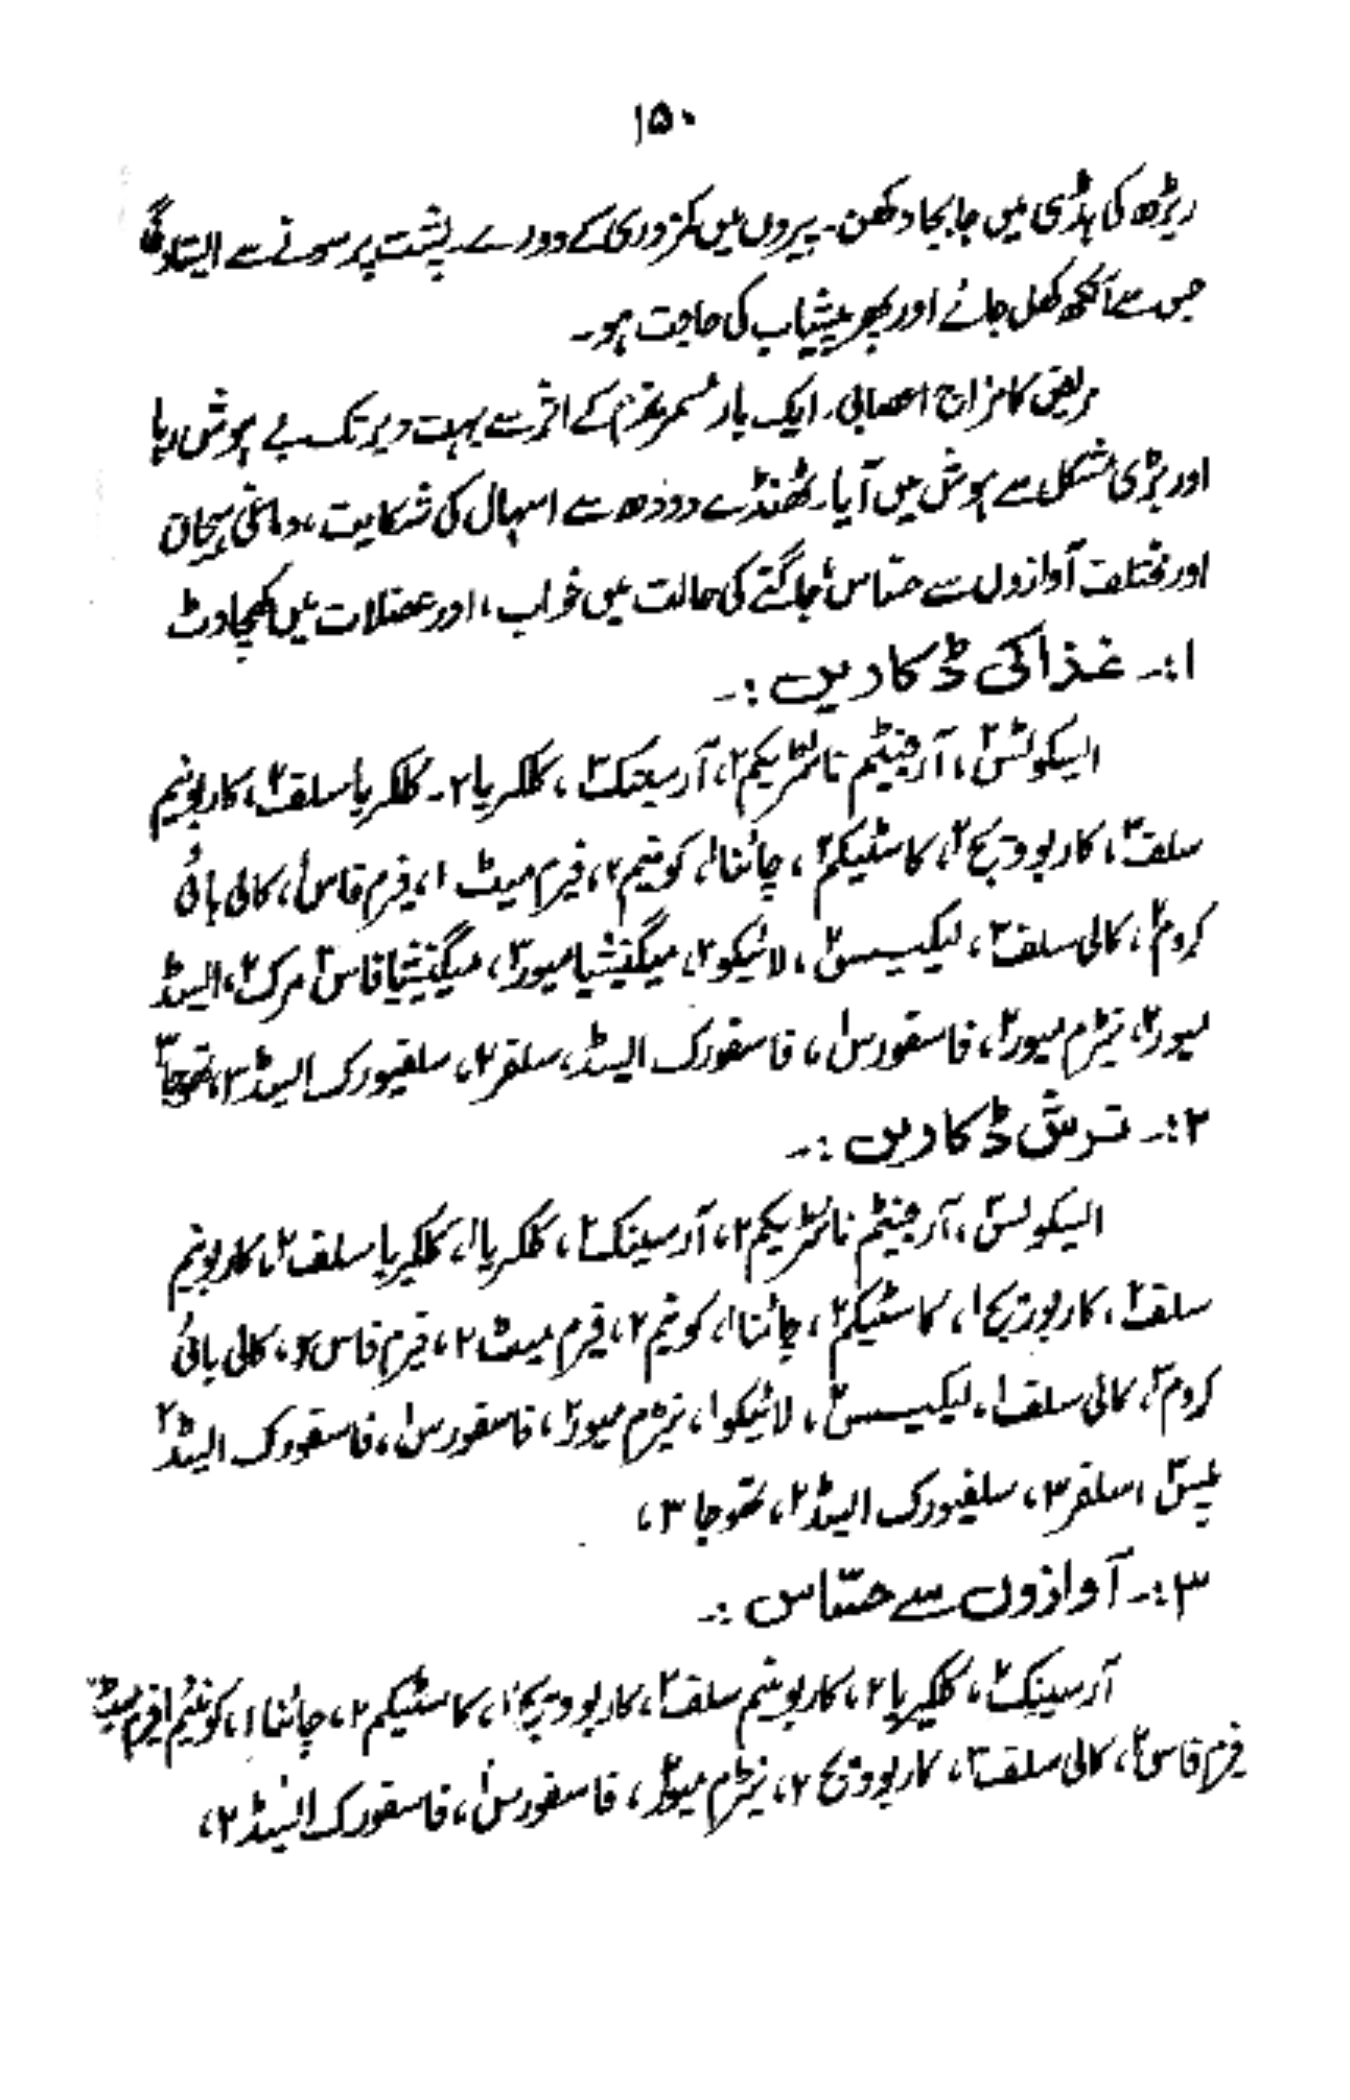 ۱۵۰
ریڑھ کی ہڈی میں جابجا دکھن۔ پیروں میں کمزوری کے دورے۔ پشت پر سونے سے ایستادگی
جس سے آنکھ کھل جائے اور پھر پیشاب کی حاجت ہو۔
مریض کا مزاج اعصابی۔ ایک بار مسمریزم کے اثر سے بہت دیر تک بے ہوش رہا
اور بڑی مشکل سے ہوش میں آیا۔ ٹھنڈے دودھ سے اسہال کی شکایت، دماغی ہیجان
اور مختلف آوازوں سے حساس، جاگتے کی حالت میں خواب، اور عضلات میں کھچاوٹ
۱:۔ غذا کی ڈکاریں :۔
ایسکولس۲، آرجنٹم نائٹریکم ۲، آرسینک۲، کلکریا ۲۔ کلکریا سلف۲، کاربونیم
سلف۳، کاربو ویج ۲، کاسٹیکم۲، چائنا۱، کونیم ۲، فیرم میٹ ۱، فیرم فاس۱، کالی بائی
کروم۲، کالی سلف۲، لیکیسس۲، لائیکو ۲، میگنیشیا میور۳، میگنیشیا فاس۳ مرک۲، ایسڈ
میور۲، نیٹرم میور۲، فاسفورس۱، فاسفورک ایسڈ، سلفر ۲، سلفیورک ایسڈ ۳، تھوجا۳
۲:۔ ترش ڈکاریں :۔
ایسکولس۳، آرجنٹم نائٹریکم ۲، آرسینک۲، کلکریا۱، کلکیریا سلف ۲، کاربونیم
سلف۲، کاربو ویج ۱، کاسٹیکم۲، چائنا۱، کونیم ۲، فیرم میٹ ۲، فیرم فاس ۲، کالی بائی
کروم۳، کالی سلف۱، لیکیسس۲، لائیکو۱، نیٹرم میور۲، فاسفورس۱، فاسفورک ایسڈ۲
سلفر ۳، سلفیورک ایسڈ ۲، تھوجا ۳،
۳:۔ آوازوں سے حسّاس :۔
آرسینک۲، کلکیریا ۲، کاربونیم سلف۲، کاربو ویج۱، کاسٹیکم ۲، چائنا ۱، کونیم۱ فیرم میٹ
فیرم فاس۲، کالی سلف۳، کاربو ویج ۲، نیٹرم میور۲، فاسفورس۱، فاسفورک ایسڈ ۲،